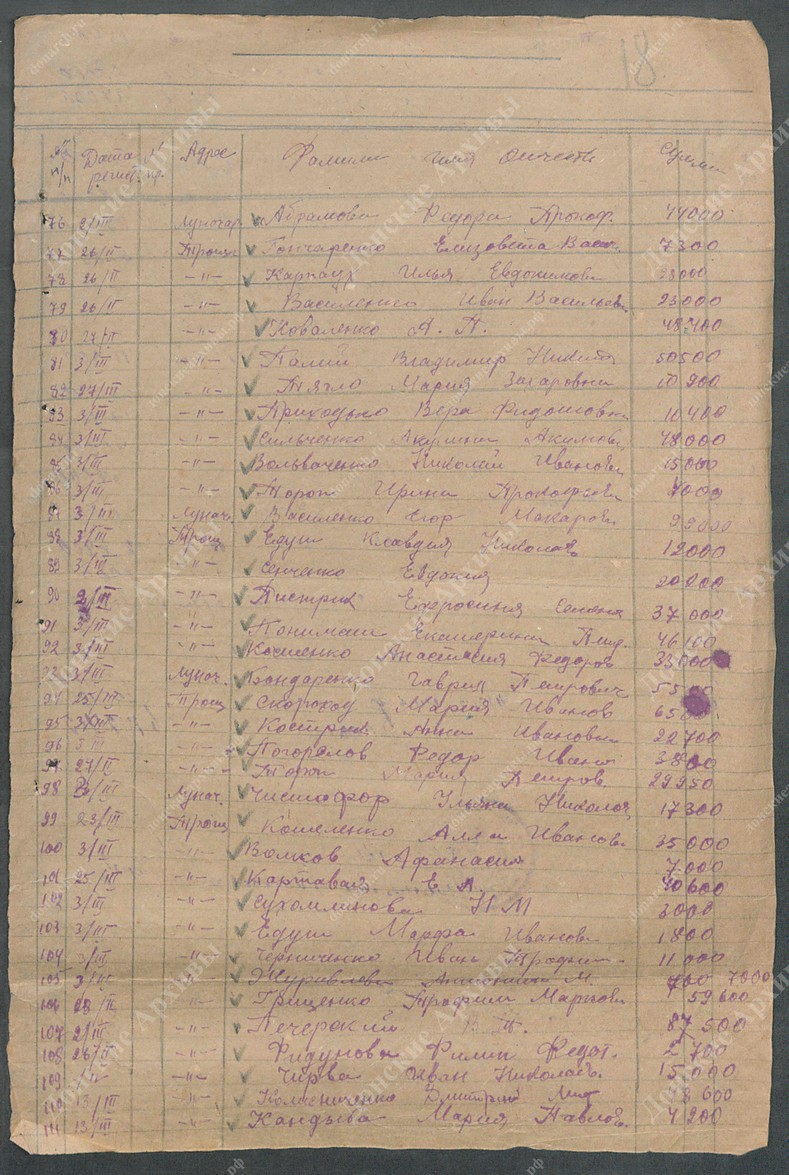 18
№ п/п Дата регист. № пр. Адрес Фамилия имя отчеств Сумма
76 2/III Луначар. Абрамова Федора Прокоф. 44000
77 26/II Троиц Гончаренко Елизовета Васил. 7300
78 26/II -"- Карпаух Илья Евдокимови
79 26/II -"- Василенко Иван Васильев 23000
80 27/II -"- Коваленко А. П. 48400
81 3/III -"- Палий Владимир Никит 50500
82 27/III -"- Тягло Мария Захаровна 10200
83 3/III -"- Приходько Вера Фидотовн 10400
84 3/III -"- Сильченко Акимовн 48000
85 3/III -"- Вольваченко Николай Иванови 15000
86 3/III -"- Торон Ирина Прокофьевн 7000
87 3/III Лунач. Василенко Егор Макаров
88 3/III Троиц Едуш Клавдия Николаев 12000
89 3/III -"- Сенченко Евдокия 20000
90 2/III -"- Пистряк Ехросиния Семена 37000
91 3/III -"- Екатерина Пет. 46100
92 3/III -"- Костенко Анастасия Федоров 33000
93 3/III Луноч. Бондаренко Гаврил Петрович
94 25/III Троиц Скороход Мария Иванов
95 3/III -"- Кострык Анна Ивановна 22700
96 3/III -"- Погорелов Федор Ивано 3800
97 27/II -"- Мария Петров. 29950
98 3/III Лунач. Чистофор Ульяна Николов 17300
99 23/III Троиц Кошеленко Алла Иванов 35000
100 3/III -"- Волков Афанасия 7000
101 25/III -"- Картавая Е А. 40600
102 3/III -"- Сухомлинова Н М 3000
103 3/III -"- Едуш Марфа Иванов 1800
104 3/III -"- Черниченко Иван Трофим 11000
105 3/III -"- Журавлева Антонина М. 700 7000
106 -"- Грищенко Трофим Маркови 59600
107 2/III -"- Печерский В. Т. 87500
108 26/II -"- Фидуновн Филип Федот. 2700
109 -"- Чирва Иван Николаев. 15000
110 13/III -"- Дмитрий
111 13/III -"- Кандыба Мария Павлов. 4200
Донские Архивы
donarch.ru